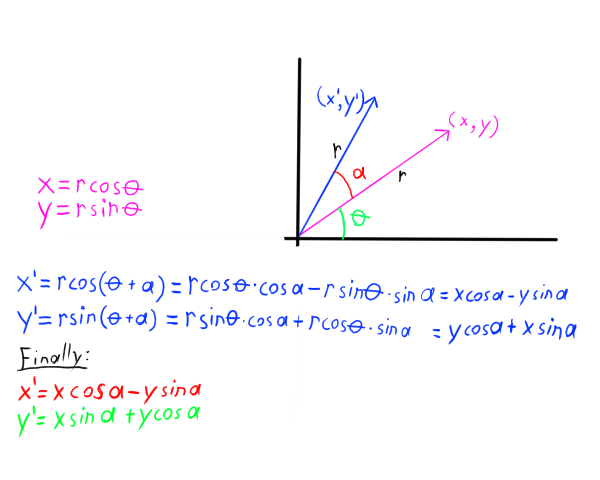 (x',y')
(x,y)
r
α
r
θ
x=rcosθ
y=rsinθ
x'=rcos(θ+α)=rcosθ·cosα-rsinθ·sinα=xcosα-ysinα
y'=rsin(θ+α)=rsinθ·cosα+rcosθ·sinα =ycosα+xsinα
Finally:
x'=xcosα-ysinα
y'=xsinα+ycosα